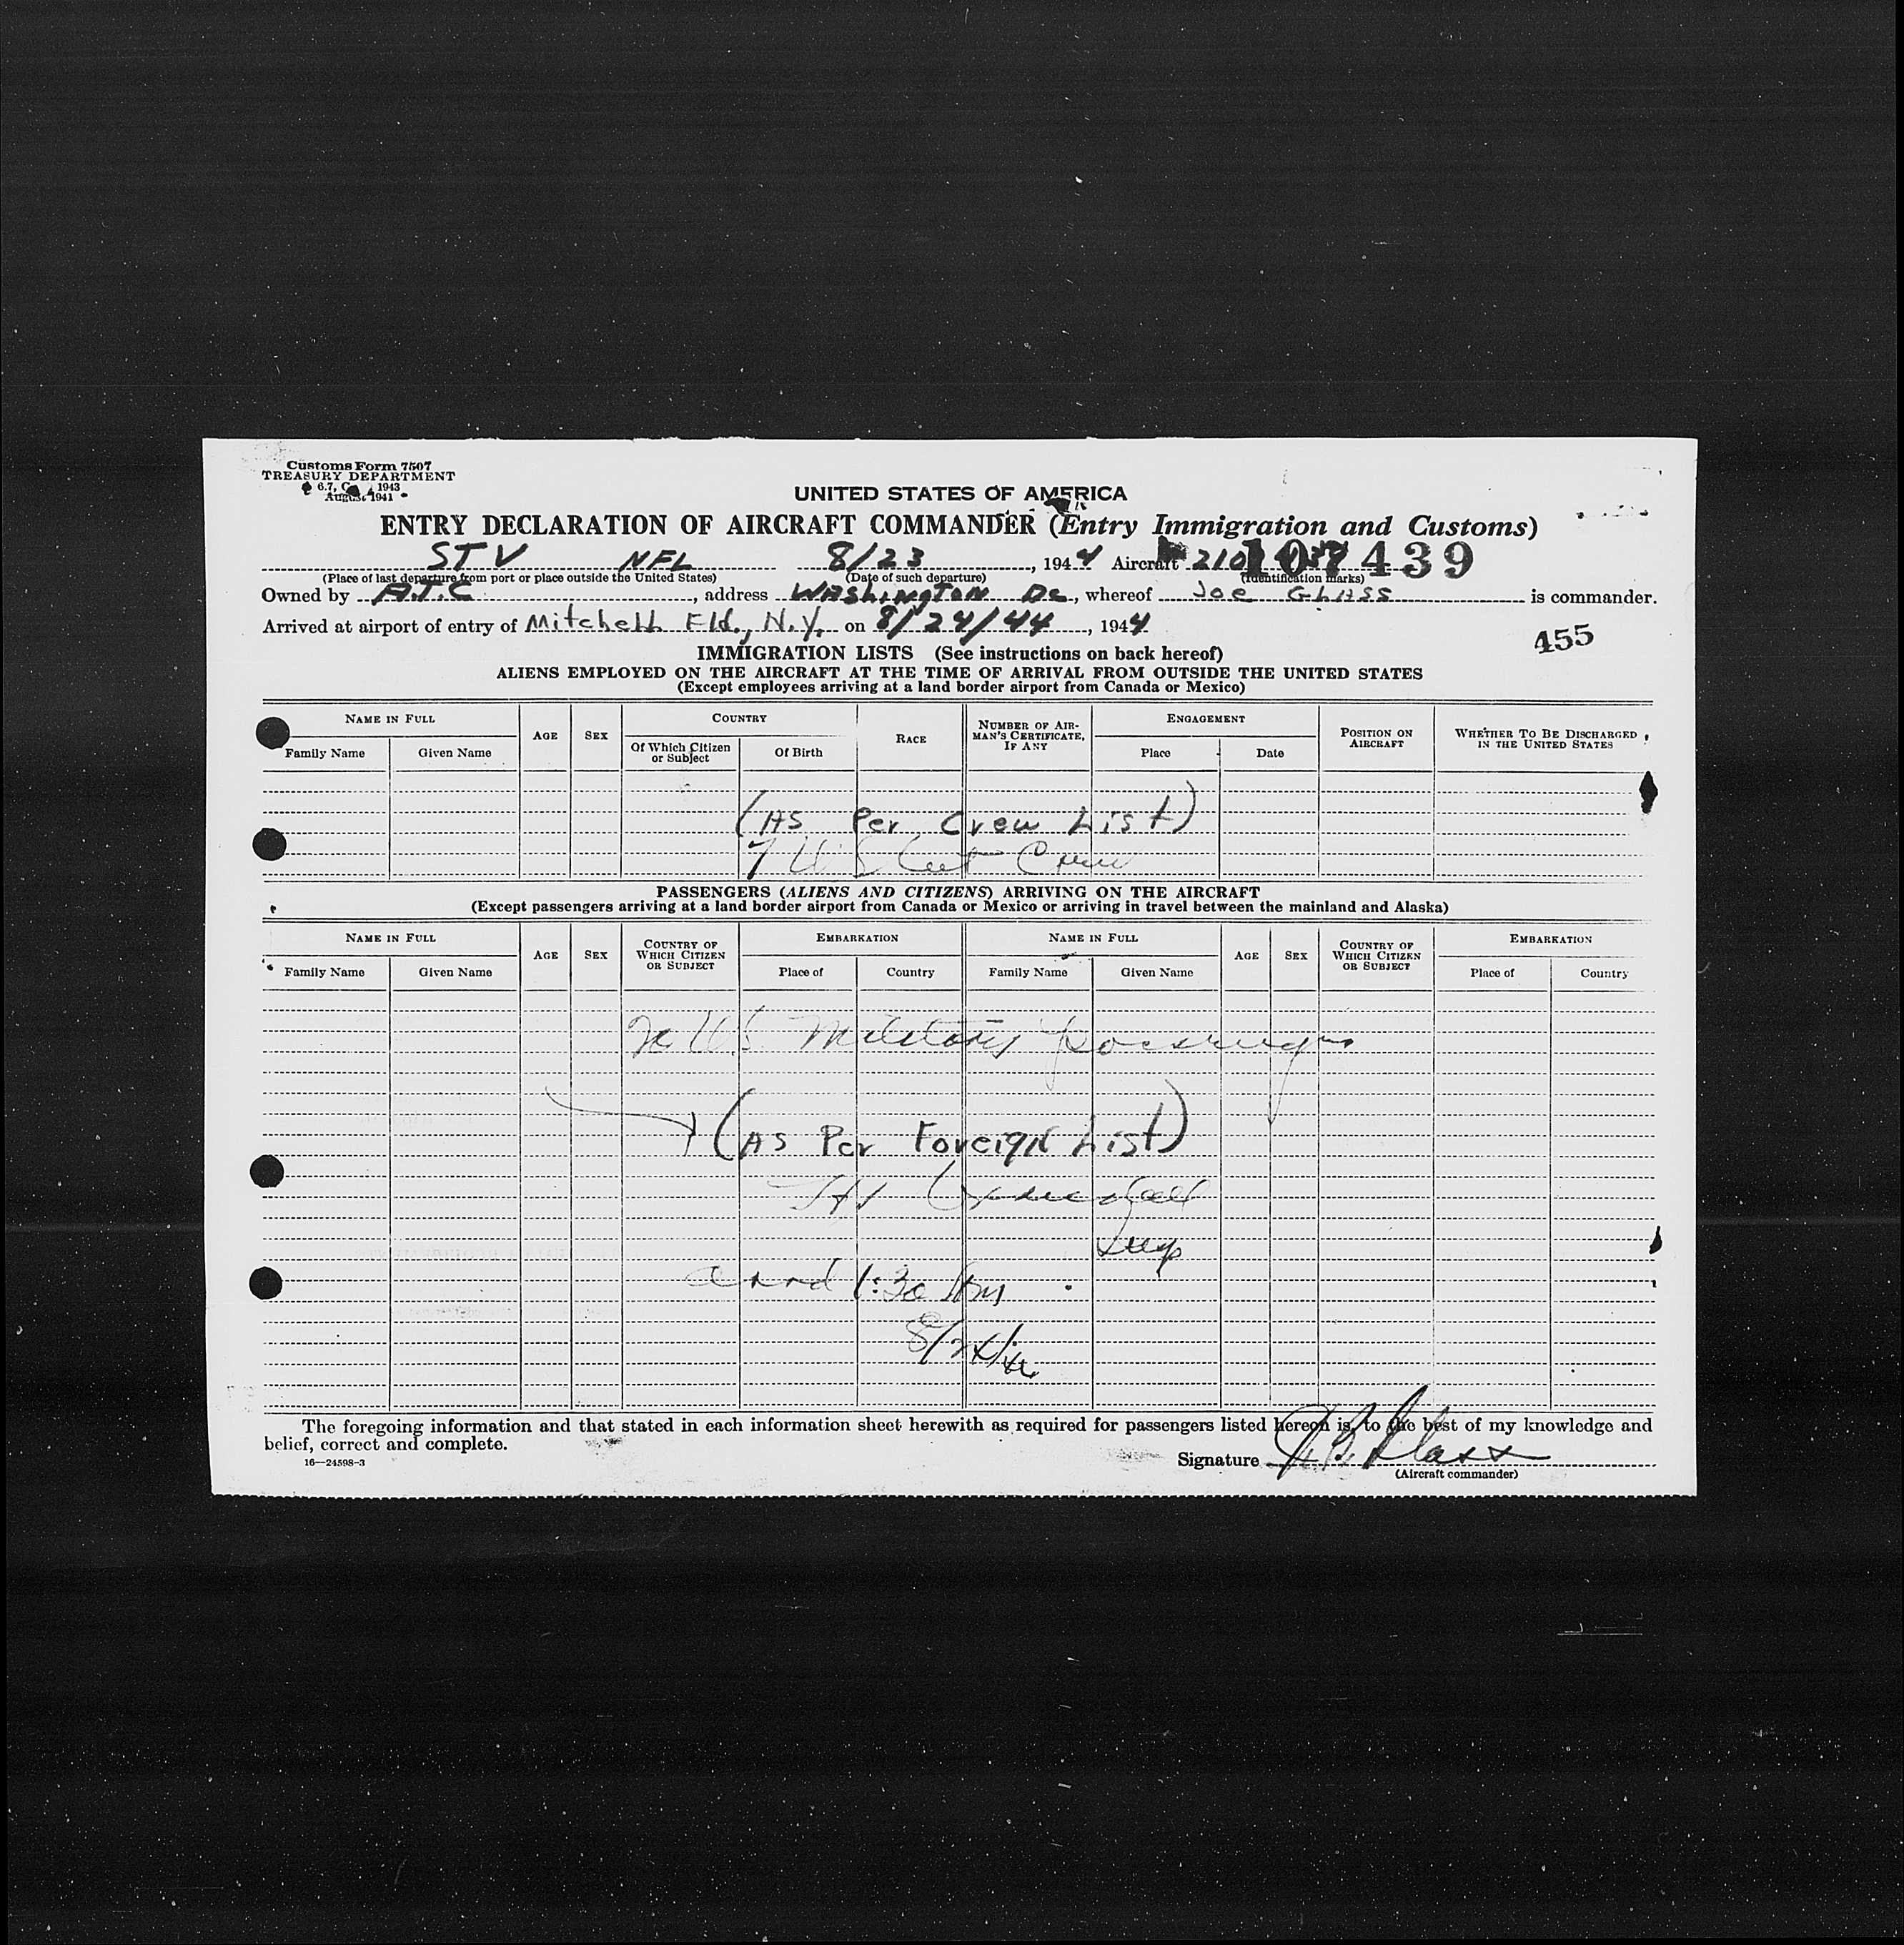 Customs Form 7507
TREASURY DEPARTMENT
1943
August 1941
UNITED STATES OF AMERICA
ENTRY DECLARATION OF AIRCRAFT COMMANDER (Entry Immigration and Customs)
STV NFL 8/23, 1944 Aircraft 107439
(Place of last departure from port or place outside the United States) (Date of such departure) (Identification marks)
Owned by A.T.C, address WAShiNgTON Dc, whereof Joe GLASS is commander.
Arrived at airport of entry of Mitchell Fld., N.Y. on 8/24/44, 1944
455
IMMIGRATION LISTS (See instructions on back hereof)
ALIENS EMPLOYED ON THE AIRCRAFT AT THE TIME OF ARRIVAL FROM OUTSIDE THE UNITED STATES
(Except employees arriving at a land border airport from Canada or Mexico)
NAME IN FULL AGE SEX COUNTRY RACE NUMBER OF AIRMAN'S CERTIFICATE, IF ANY ENGAGEMENT POSITION ON AIRCRAFT WHETHER TO BE DISCHARGED IN THE UNITED STATES
Family Name Given Name Of Which Citizen or Subject Of Birth Place Date
(As Per Crew List)
7 U.S. Cit Crew
PASSENGERS (ALIENS AND CITIZENS) ARRIVING ON THE AIRCRAFT
(Except passengers arriving at a land border airport from Canada or Mexico or arriving in travel between the mainland and Alaska)
NAME IN FULL AGE SEX COUNTRY OF WHICH CITIZEN OR SUBJECT EMBARKATION NAME IN FULL AGE SEX COUNTRY OF WHICH CITIZEN OR SUBJECT EMBARKATION
Family Name Given Name Place of Country Family Name Given Name Place of Country
U.S. Military passengers
(As Per Foreign List)
Insp
arrd 1:30 Am
8/24/44
The foregoing information and that stated in each information sheet herewith as required for passengers listed hereon is, to the best of my knowledge and
belief, correct and complete.
16—24598-3
Signature J. B. Glass
(Aircraft commander)